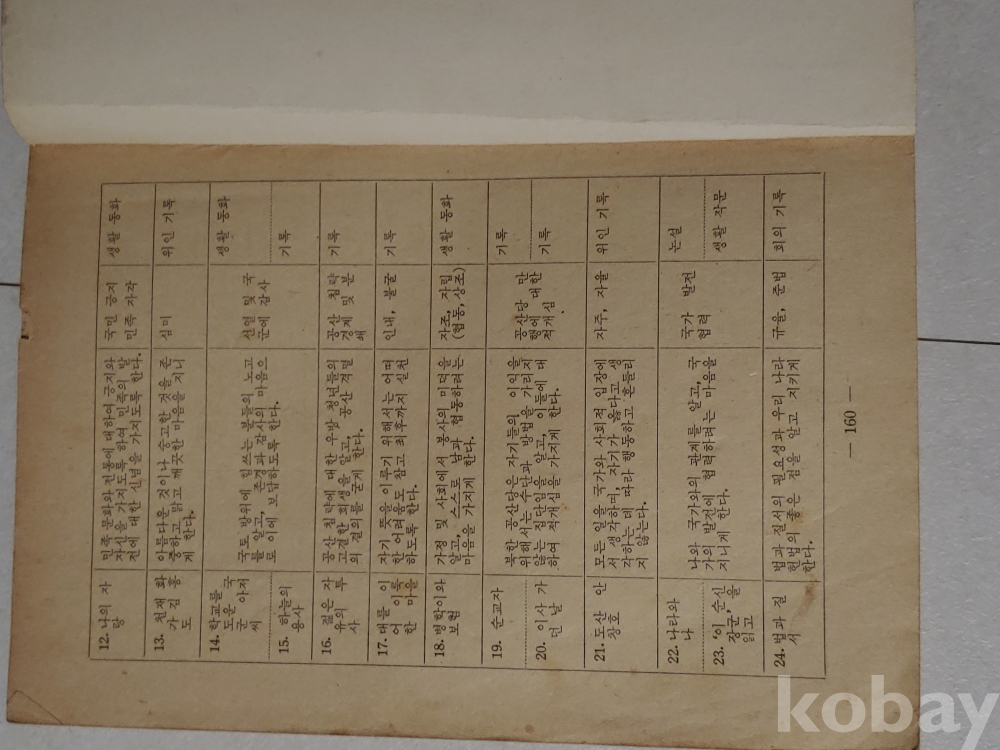 12. 나의 자
랑
민족 문화와 전통에 대하여 긍지와
자신을 가지도록 하여 민족의 발
전에 대한 신념을 가지도록 한다.
국민 긍지
민족 자각
생활 동화
13. 천재 화
가 김 홍
도
아름다운 것이나 숭고한 것을 존
중하고, 맑고 깨끗한 마음을 지니
게 한다.
심미
위인 기록
14. 학교를
도운 국
군 아저
씨
15. 하늘의
용사
국토 방위에 힘쓰는 분들의 노고
를 알고, 존경과 감사의 마음으
로 이에 보답하도록 한다.
선열 및 국
군에 감사
생활 동화
기록
16. 젊은 자
유의 투
사
공산 침략에 대한 우방 청년들의
고결한 희생을 알고, 공산 격멸
의 결의를 굳게 한다.
공산 침략
경계 및 분
쇄
기록
17. 대를 이
어 이룩
한 마을
자기 뜻을 이루기 위해서는 어떠
한 어려움도 참고 최후까지 실천
하도록 한다.
인내, 불굴
기록
18. 병학이와
보험
가정 및 사회에서 봉사의 미덕을
알고, 스스로 남과 협동하려는
마음을 가지게 한다.
자조, 자립
(협동, 상조)
생활 동화
19. 순교자
20. 이사 가
던 날
북한 공산당은 자기들의 이익을
위해서는 수단과 방법을 가리지
않는 집단임을 알고, 이들에 대
하여 적개심을 가지게 한다.
공산당 만
행에 대한
적개심
기록
기록
21. 도산 안
창호
모든 일을 국가와 사회적 입장에
서 생각하며, 자기가 옳다고 생
각하는 데 따라 행동하고 흔들리
지 않는다.
자주, 자율
위인 기록
22. 나라와
나
23. '이 순신
장군'을
읽고
나와 국가와의 관계를 알고, 국
가의 발전에 협력하려는 마음을
지니게 한다.
국가 발전
협력
논설
생활 작문
24. 법과 질
서
법과 질서의 필요성과 우리 나라
헌법의 좋은 점을 알고 지키게
한다.
규율, 준법
회의 기록
— 160 —
kobay